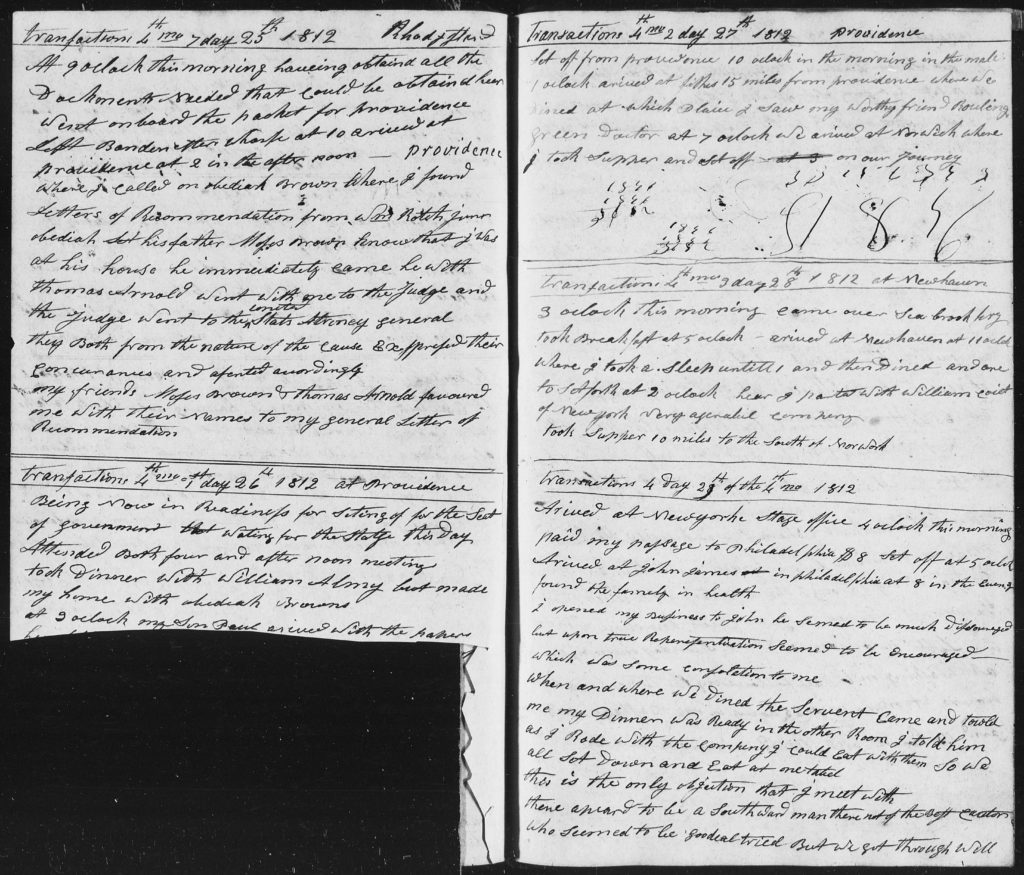 transactions 4th mo 7 day 25th 1812 Rhod Iland
At 9 oclock this morning haveing obtaind all the
Dockments Needed that could be obtaind hear
Went onboard the packet for providence
Left Banderetters wharfe at 10 arived at
providence at 2 in the after noon — providence
Where I called on obediah Brown Where I found
Letters of Recommendation from Wm Rotch junr
obediah Let his father Moses Brown know that I Was
at his house he immediately came he with
thomas Arnold Went With me to the Judge and
the Judge Went to the united Stats Attorney general
they Both from the nature of the cause Expressed their
concurances and acented acordingly
my friends Moses Brown & thomas Arnold favoured
me With their Names to my general Letter of
Recommendation
transactions 4th mo 1st day 26th 1812 at Providence
Being Now in Readiness for Seting of for the Seat
of government Wating for the Stage this Day
Attended Both four and after noon meeting
took Dinner With William Almy but made
my home With obediah Browns
at 3 oclock my Son Paul arived With the papers
transactions 4th mo 2 day 27th 1812 providence
Set off from providence 10 oclock in the morning in the male
1 oclock arived at fishes 15 miles from providence where We
dined at which Plaice I Saw my Worthy friend Rouling
green doctor at 7 oclock We arived at Norwich where
I took Supper and Set off at 3 on our Journey
1 8 5 6
transactions 4th mo 3 day 28th 1812 at Newhaven
3 oclock this morning came over Sea brook fery
took Breakfast at 5 oclock – arived at Newhaven at 11 oclok
Where I took a Sleep untill 1 and then Dined and
to Set forth at 2 oclock hear I parted With William
of New york very agreabel company
took Supper 10 miles to the South of Norwork
transactions 4 day 29 of the 4th mo 1812
Arived at Newyorke Stage office 4 oclock this morning
paid my passage to Philadelphia $8 Set off at 5 oclok
Arived at John James in philadelphia at 8 in the Evening
found the family in health
I opened my Business to John he Semed to be much discouraged
but upon true Representation Seemed to be Encouraged —
Which Was Some consolation to me
When and where We Dined the Servent Came and towld
me my Dinner Was Ready in the other Room I told him
as I Rode With the company I could Eat with them So We
all Sot Down and Eat at one tabel
this is the only objection that I meet with
there apeard to be a Southward man there not of the Soft Casters
Who Seemed to be goodeal tried But We got through Well